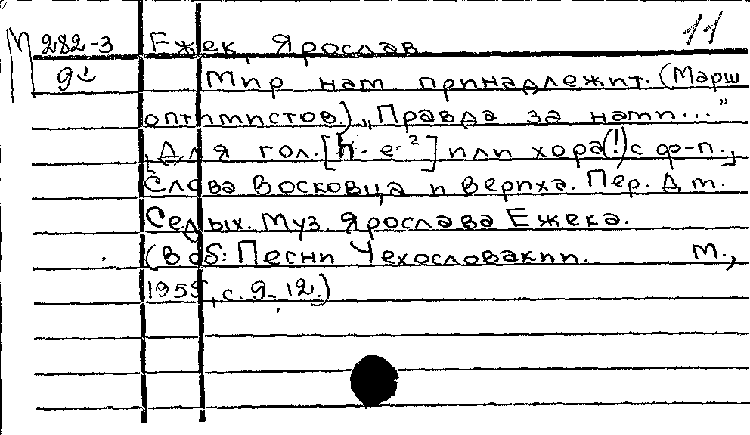 11
М 282-3 Ежек, Ярослав.
9↓ Мир нам принадлежит. (Марш
оптимистов.) „Правда за нами..."
Для гол. [h - e²] или хора(!) с ф-п.,
Слова Восковца и Вериха. Пер. Дм.
Седых. Муз. Ярослава Ежека.
(В сб: Песни Чехословакии. М.,
1955, с. 9-12.)